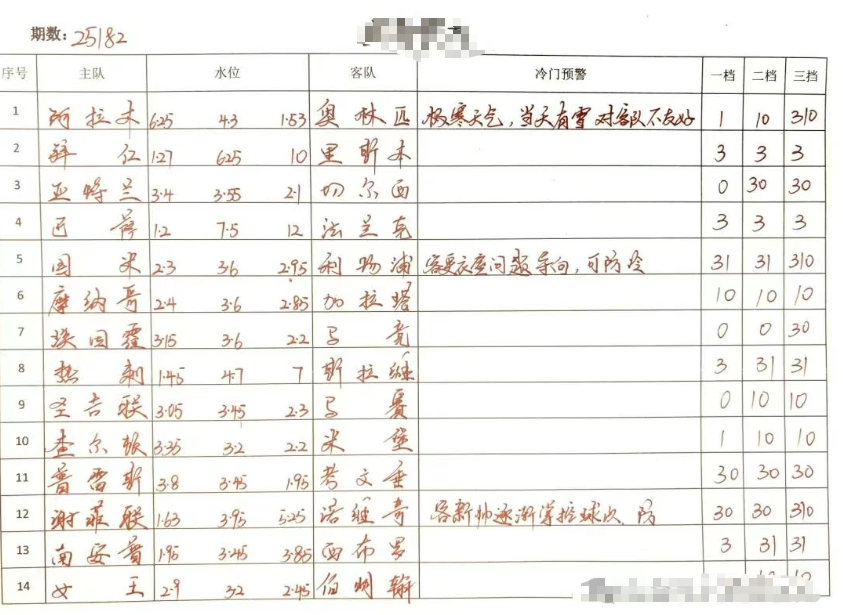 期数: 25182
序号 主队 水位 客队 冷门预警 一档 二档 三挡
1 阿拉木 6.25 4.3 1.53 奥林匹 极寒天气，当天有雪 对客队不友好 1 10 310
2 拜仁 1.27 6.25 10 里斯本 3 3 3
3 亚特兰 3.4 3.55 2.1 切尔西 0 30 30
4 巴萨 1.2 7.5 12 法兰克 3 3 3
5 国米 2.3 3.6 2.95 利物浦 客更衣室问题导向，可防冷 31 31 310
6 摩纳哥 2.4 3.6 2.85 加拉塔 10 10 10
7 埃因霍 3.15 3.6 2.2 马竞 0 0 30
8 热刺 1.45 4.7 7 斯拉维 3 31 31
9 圣吉联 3.05 3.45 2.3 马赛 0 10 10
10 查尔顿 3.35 3.2 2.2 米堡 1 10 10
11 普雷斯 3.8 3.45 1.95 考文垂 30 30 30
12 谢菲联 1.63 3.95 5.25 诺维奇 客新帅逐渐掌控球队 防 30 30 310
13 南安普 1.95 3.45 3.85 西布罗 3 31 31
14 女王 2.9 3.2 2.45 伯明翰